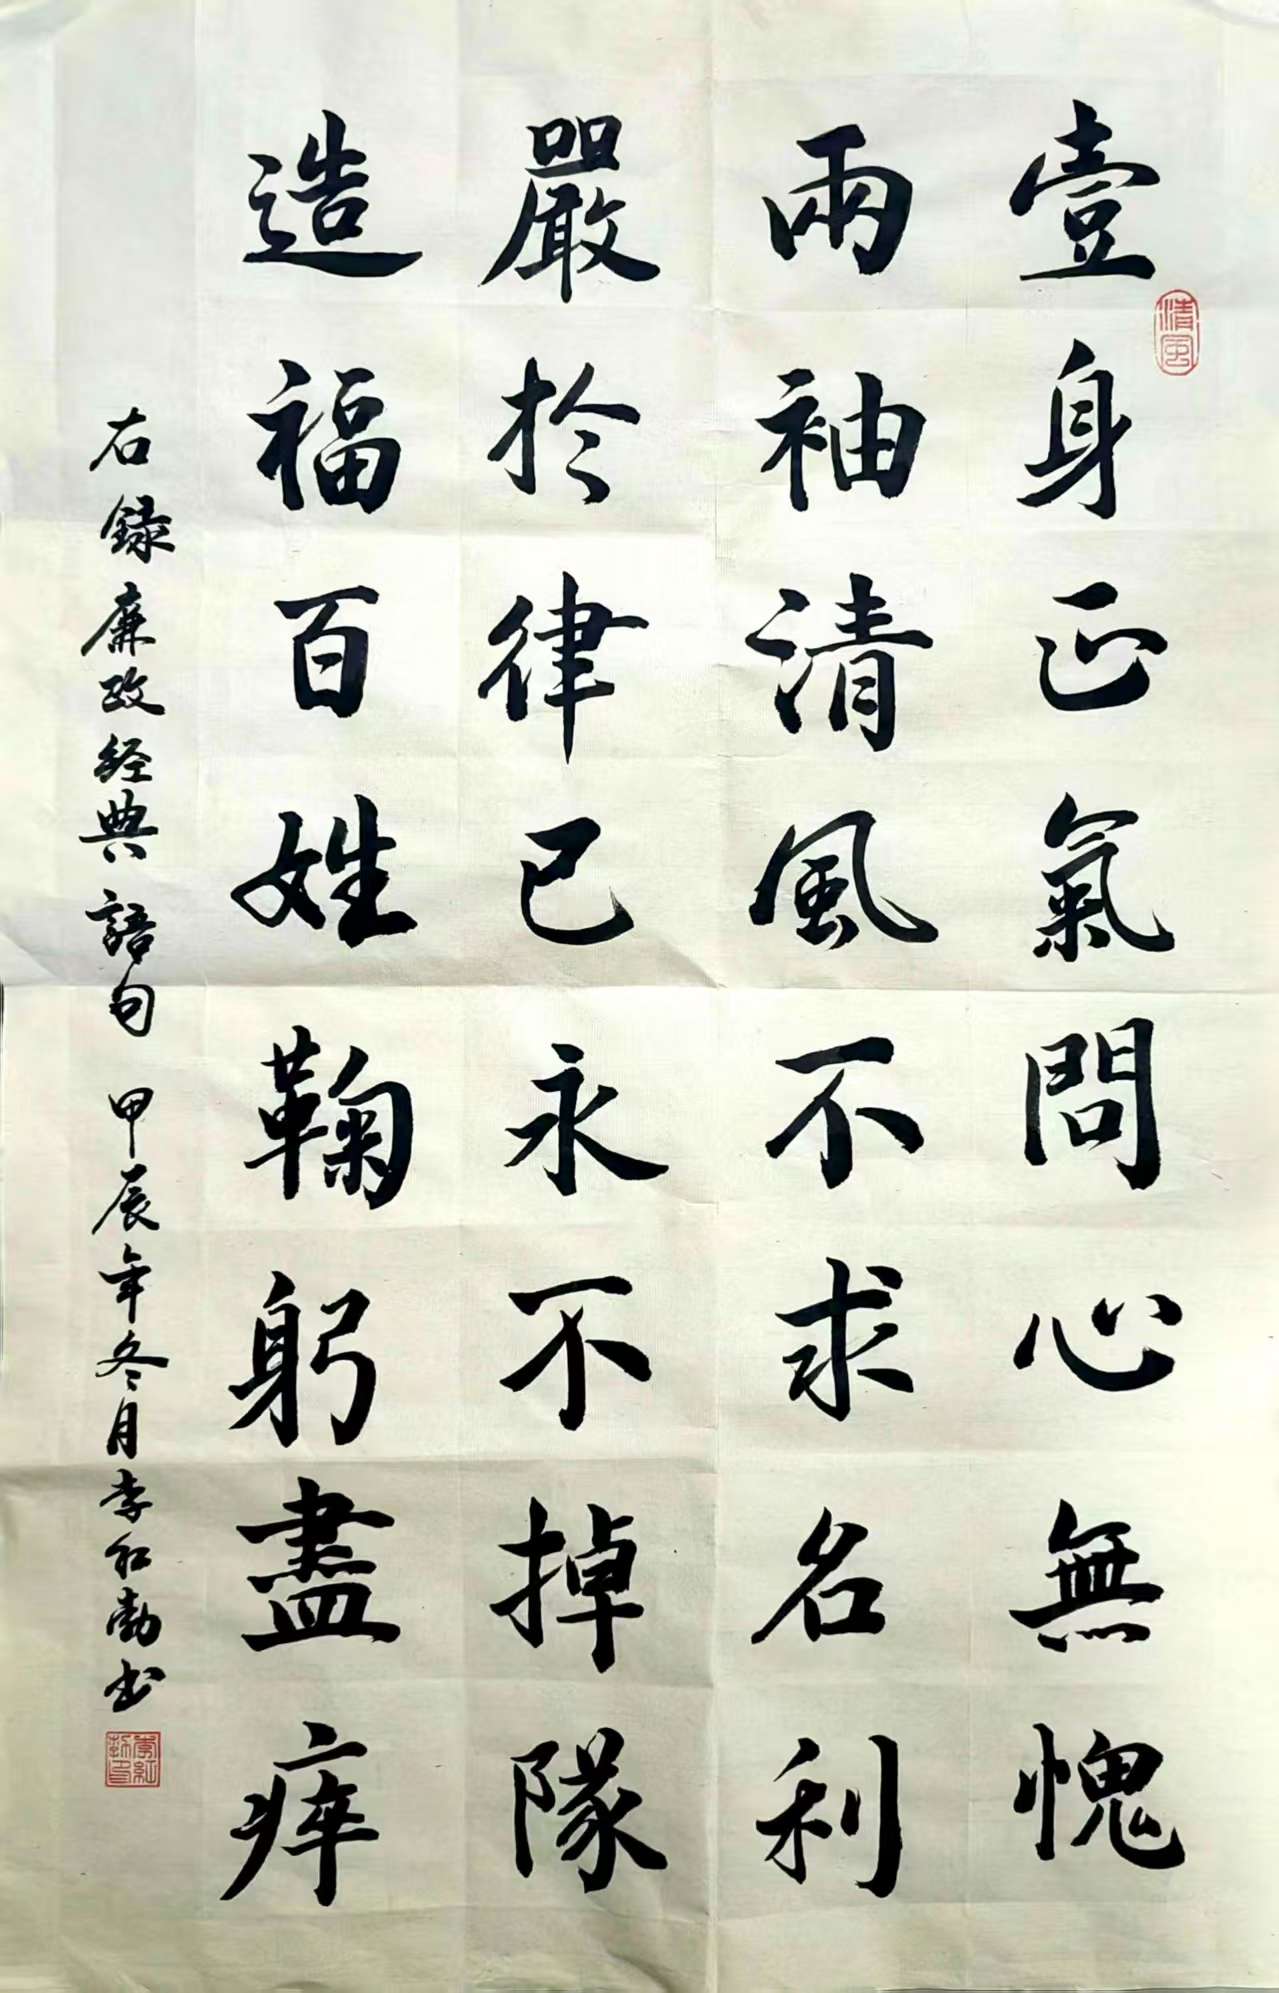 壹身正氣問心無愧
兩袖清風不求名利
嚴於律已永不掉隊
造福百姓鞠躬盡瘁
右録廉政经典語句 甲辰年冬月李红勃书
清風
李紅勃印